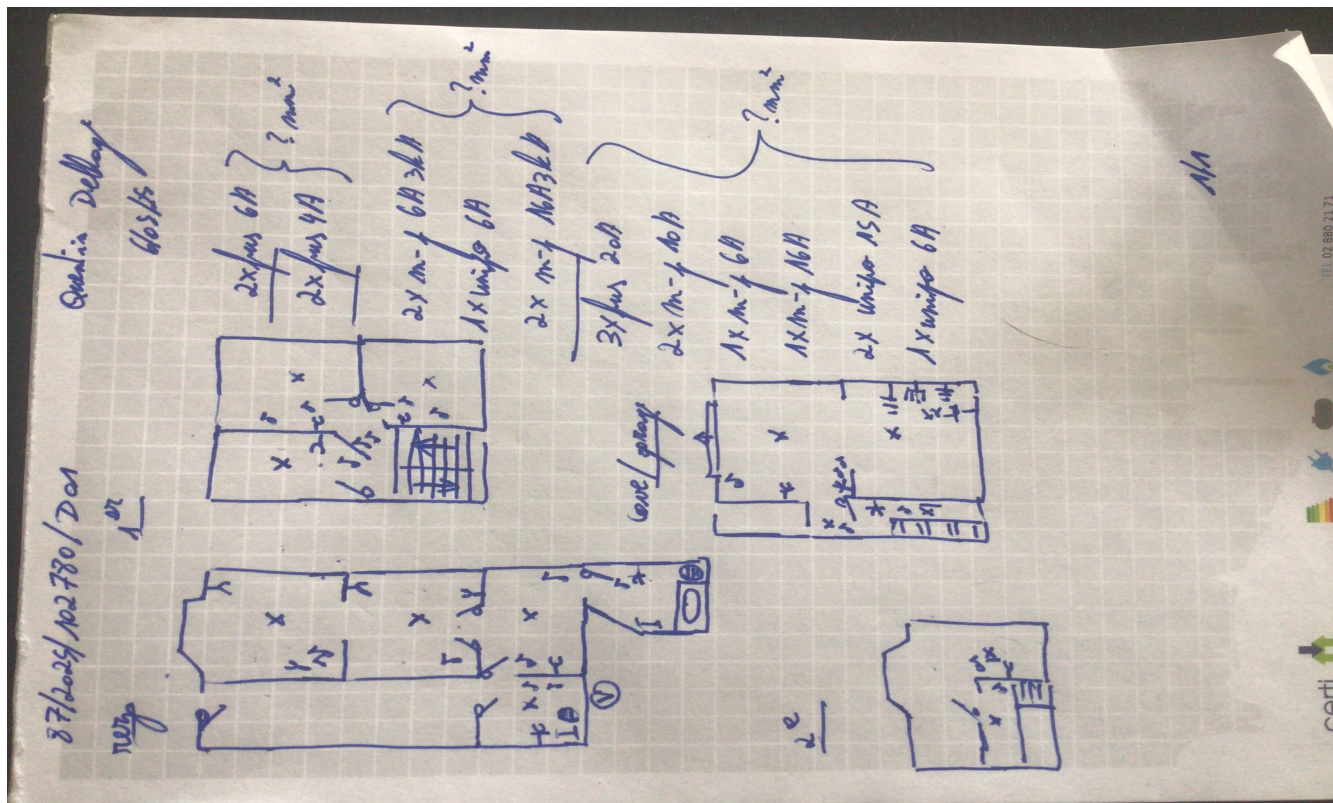 87/2025/102780/D01
Quentin
6/05/25
rez
1er
2x fus 6A
2x fus 4A
? mm²
2x m-f 6A 3kA
1x unipo 6A
2x m-f 16A 3kA
? mm²
3x fus 20A
2x m-f 10A
1x m-f 6A
1x m-f 16A
2x unipo 15A
1x unipo 6A
? mm²
Cave/garage
V
2e
1/1
certi
TEL 02 880 21 71